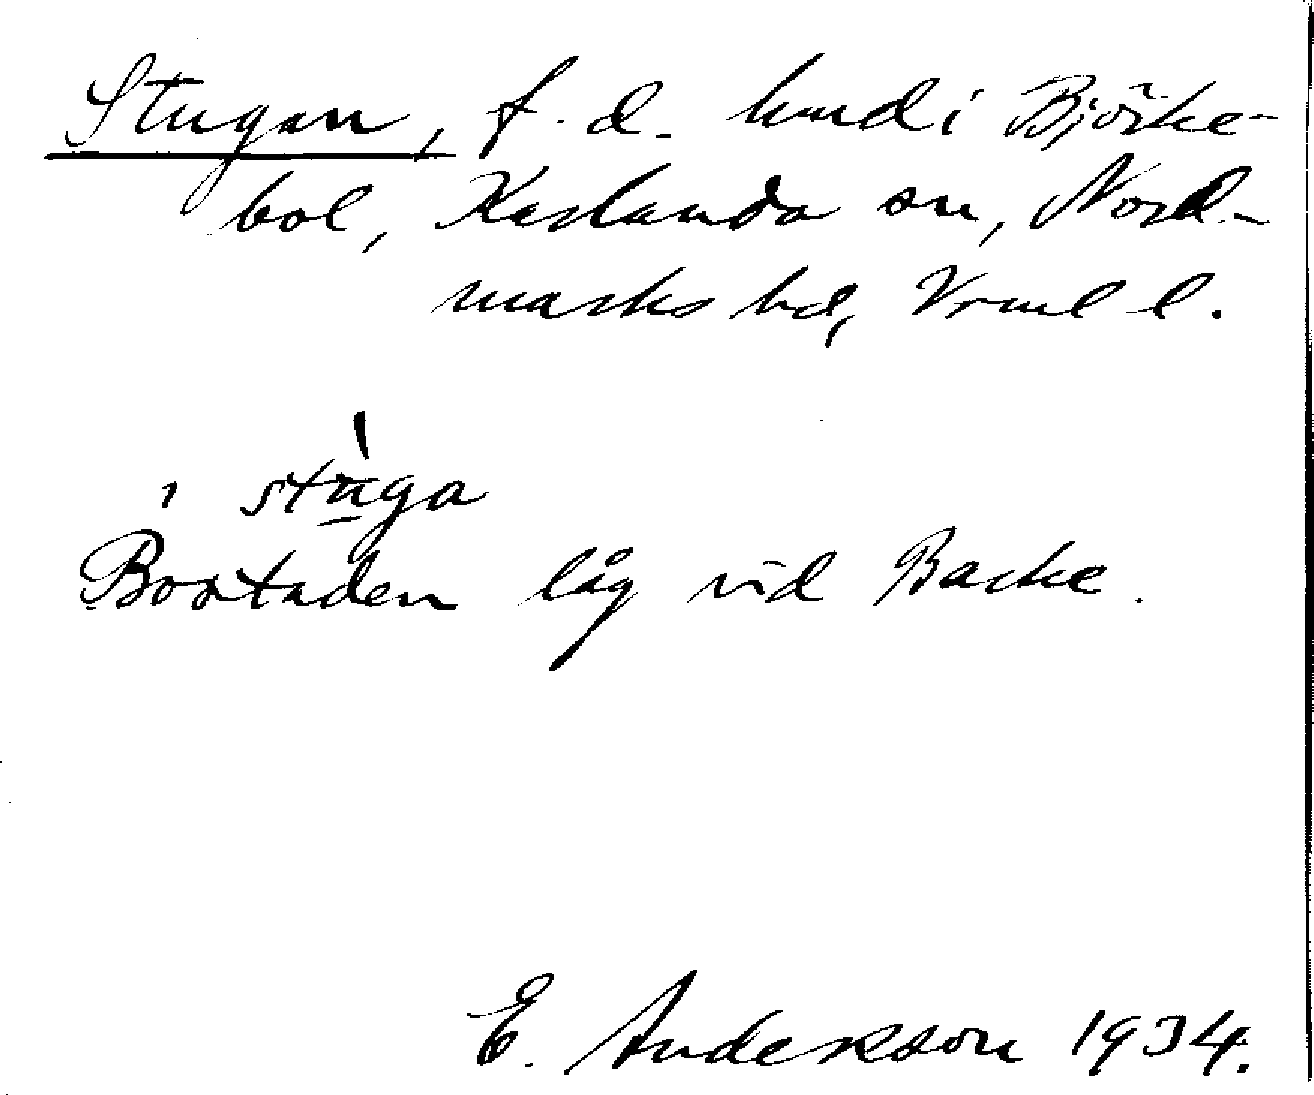 Stugan, f.d. hmd i Björke-
bol, Karlanda sn, Nord-
marks hd, Vrml l.
i stu̲ga
Bostaden låg vid Backe.
E. Anderson 1934.